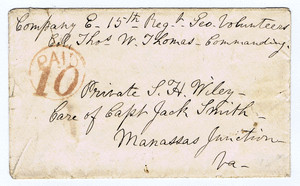 Company E - 15th Regt Geo. Volunteers
Col. Thos W. Thomas - Commanding.
PAID
10
Private S. H. Wiley -
Care of Capt Jack Smith -
Manassas Junction
Va -